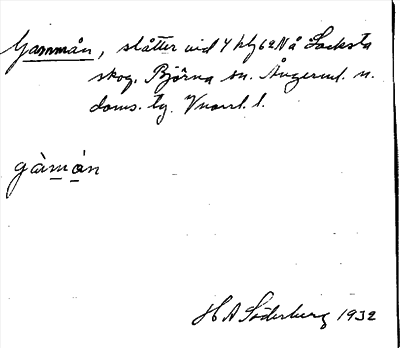 Gammån, slåtter vid Y hlg 62 N å Locksta
skog. Björna sn. Ångerml. n.
doms. lg. Vnorrl. l.
gàmán
H A Söderberg 1932